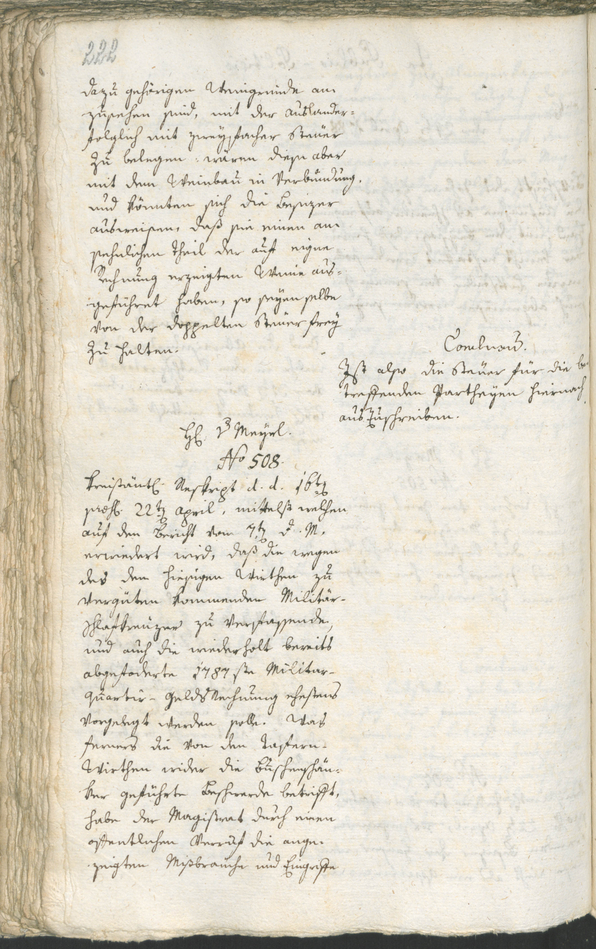 222
dazu gehörigen Weingründe an
zusehen sind, mit der ausländer-
folglich mit zweyfacher Steuer
zu belegen. wären diese aber
mit dem Weinbau in Verbindung,
und könnten sich die Besizer
ausweisen, daß sie einen an
sehnlichen Theil der auf eigne
Rechnung erzeigten Weine aus-
geführet haben, so seyen selbe
von der doppelten Steuer frey
zu halten.
Conclusum.
Ist also die Steuer für die be
treffenden Partheyen hiernach
auszuschreiben.
H. v Meyrl.
No 508.
Kreisämtl. Reskript d. d. 16ten
præs. 22ten April, mittelst welchen
auf den Bericht vom 7ten d. M.
erwiedert wird, daß die wegen
des dem hiesigen Wirthen zu
vergüten kommenden Militär-
schlafkreuzer zu verfassende,
und auch die wiederholt bereits
abgefoderte 1787ste Militar-
quartir-Gelds Rechnung ehestens
vorgelegt werden solle. Was
ferners die von den Tafern-
Wirthen wider die Buschenschän-
ker geführte Beschwerde betrifft,
habe der Magistrat durch einen
öffentlichen Verruf die ange-
zeigten Mißbräuche und Eingriffe